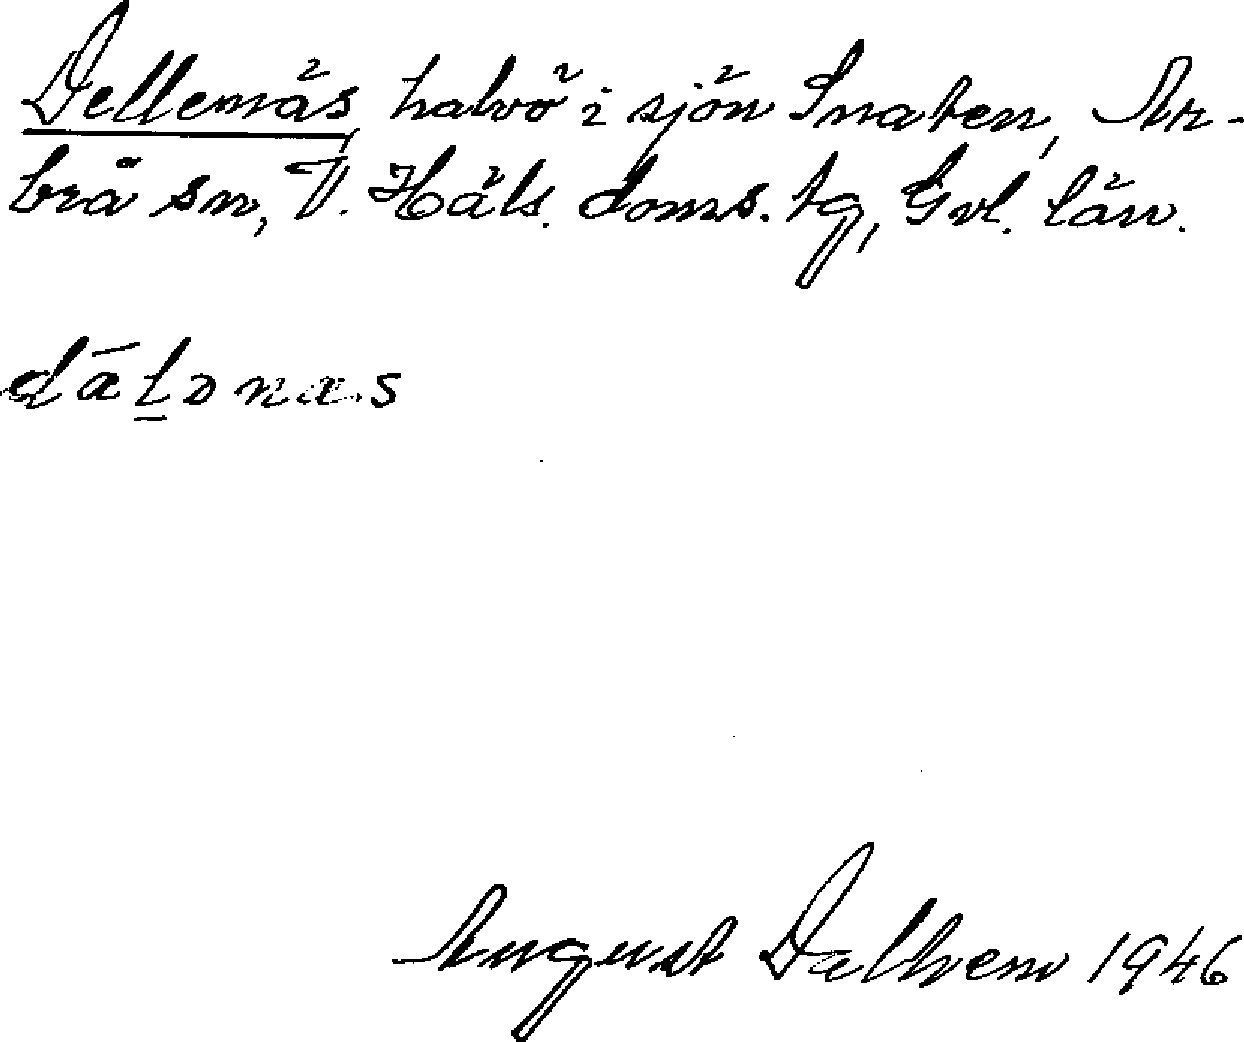 Dellemäs halvö i sjön Snaten, Ar-
brå sn, V. Häls. doms. tg, Gvl. län.
dälɔnæs
August Dalhem 1946